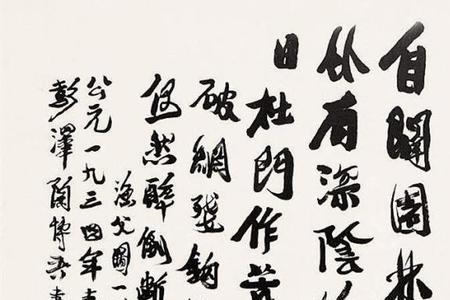 自闢園林
有深陰
日
杜門作
破網
然醉倒斷
漁父圖一
公元一九三四年
彭澤陶博吾